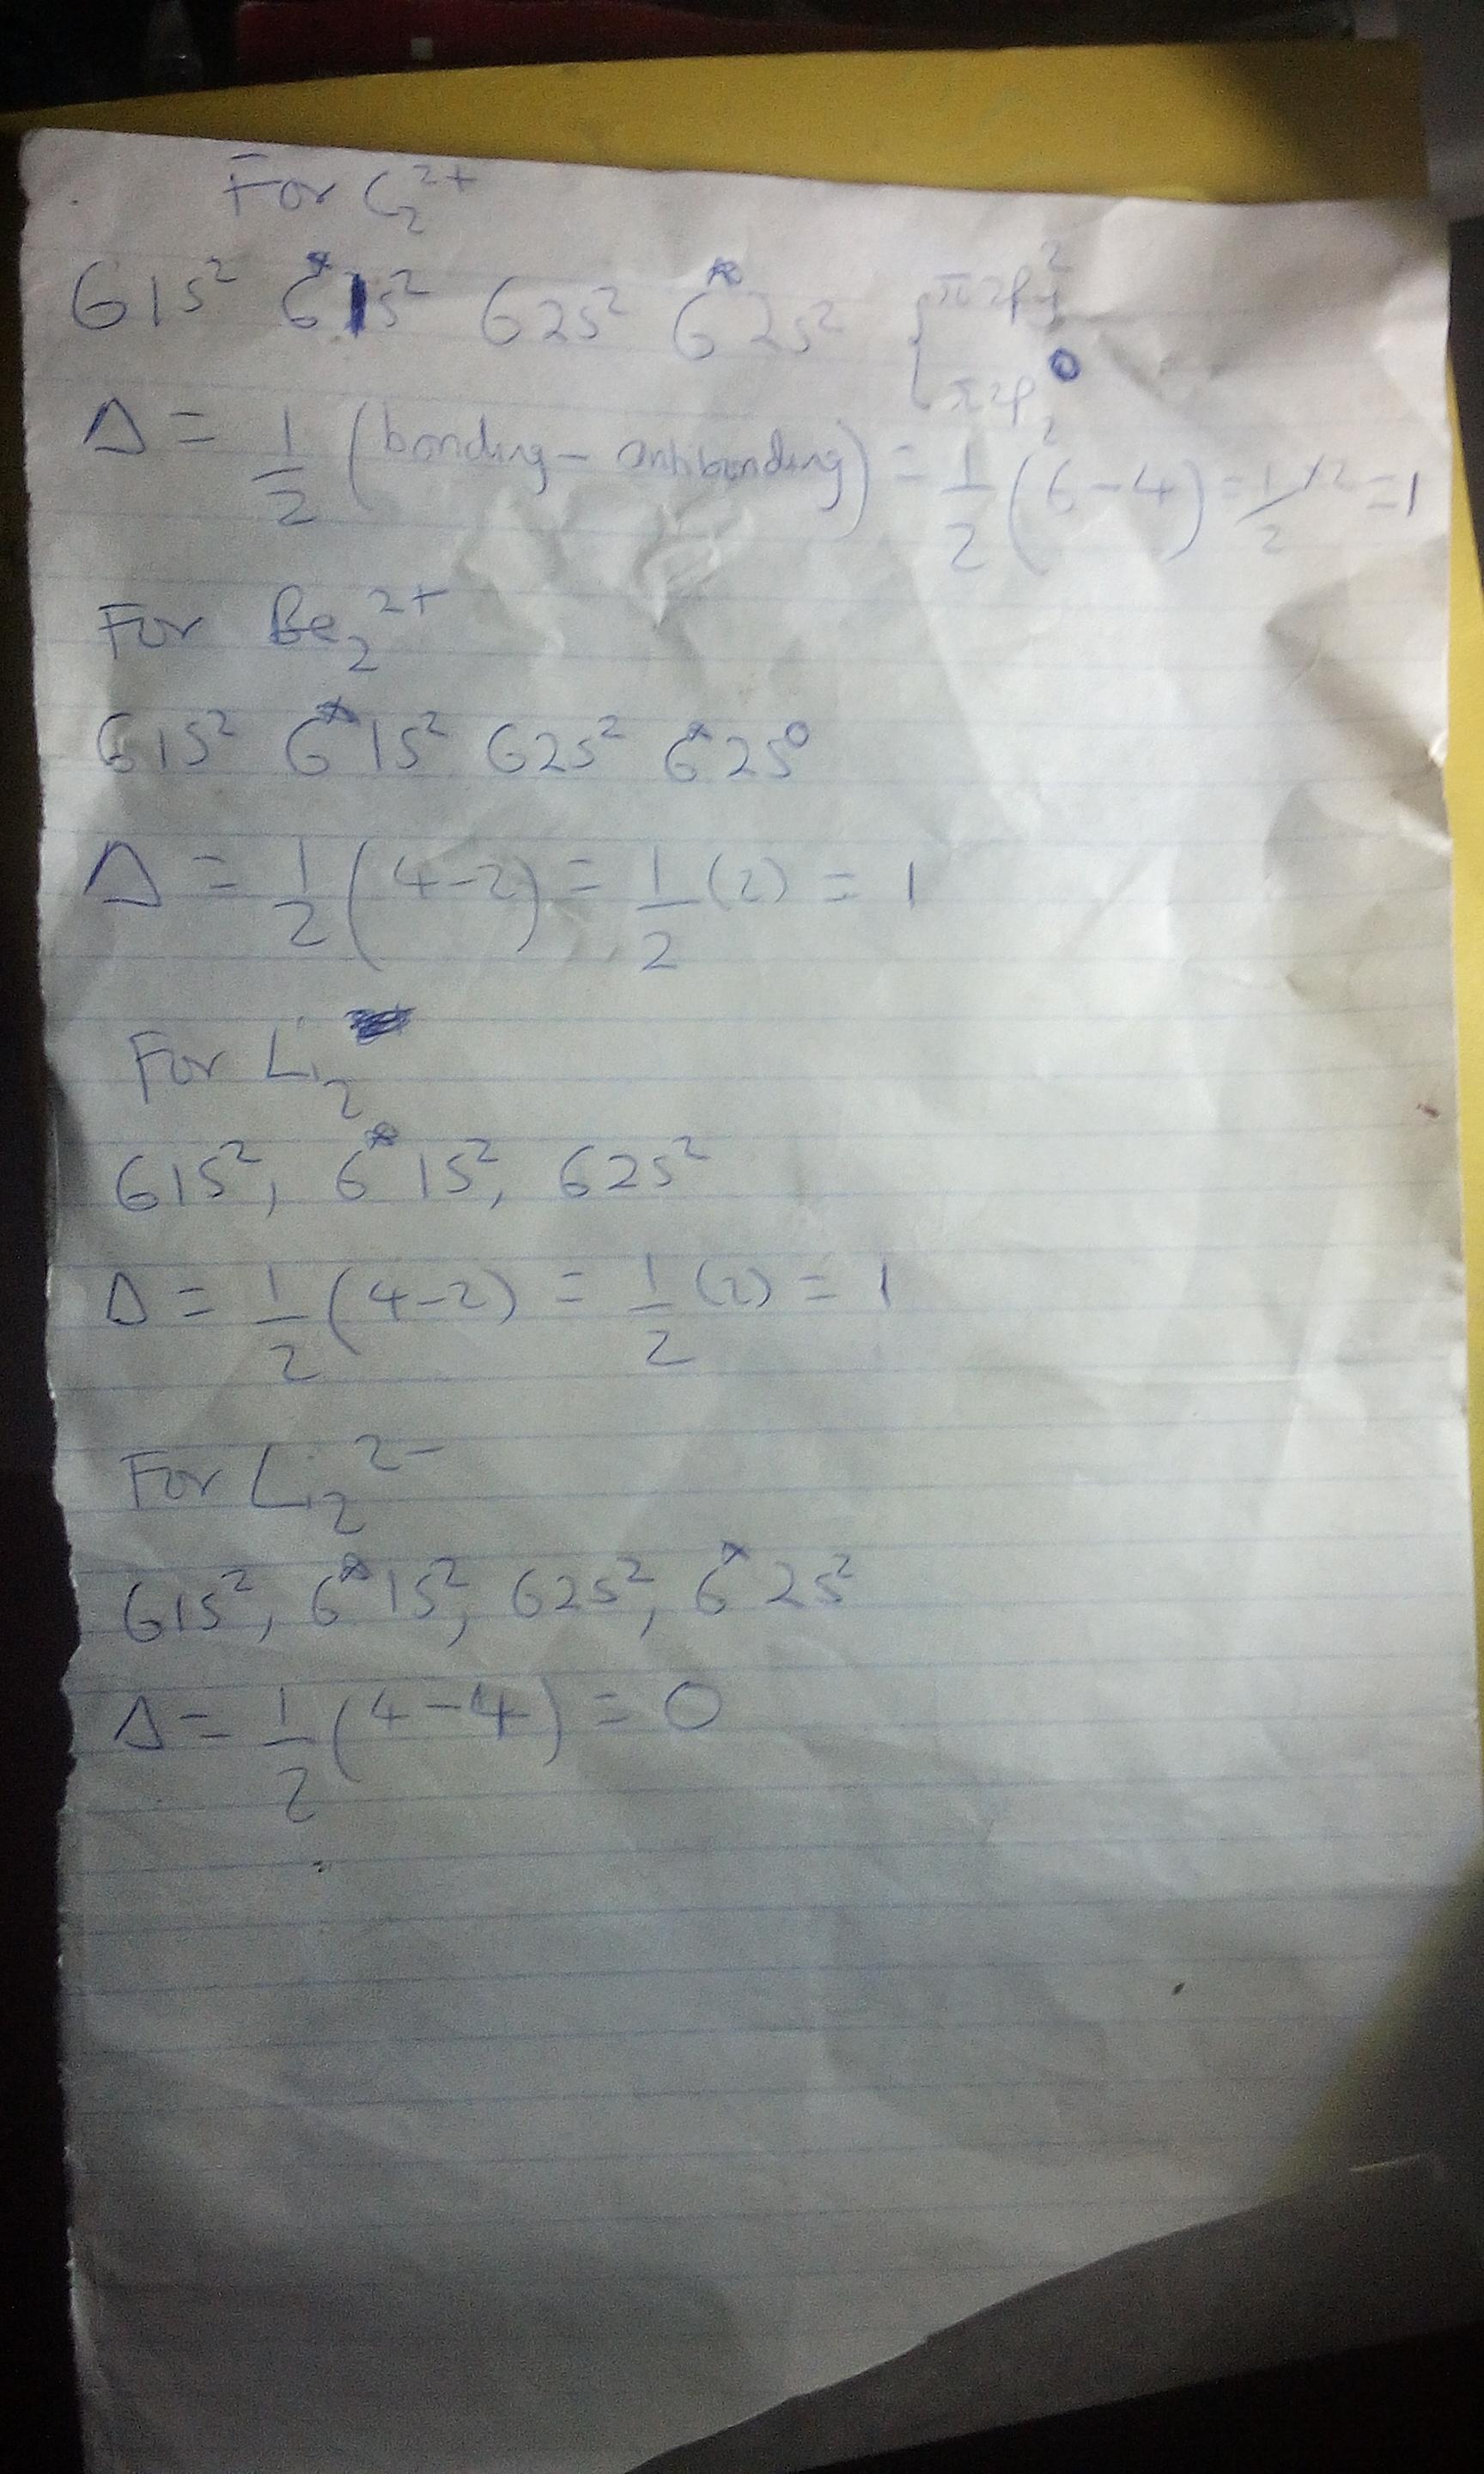 For C₂²⁺
σ1s² σ*1s² σ2s² σ*2s² {π2py² π2pz⁰
Δ = 1/2 (bonding - antibonding) = 1/2 (6-4) = 1/2 x2 = 1
For Be₂²⁺
σ1s² σ*1s² σ2s² σ*2s⁰
Δ = 1/2 (4-2) = 1/2 (2) = 1
For Li₂
σ1s², σ*1s², σ2s²
Δ = 1/2 (4-2) = 1/2 (2) = 1
For Li₂²⁻
σ1s², σ*1s², σ2s², σ*2s²
Δ = 1/2 (4-4) = 0